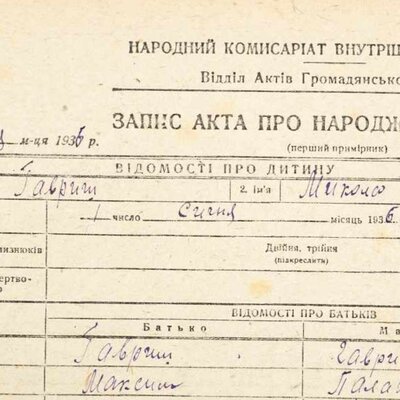 НАРОДНИЙ КОМИСАРІАТ ВНУТРІШ
Відділ Актів Громадянсько
м-ця 1936 р. ЗАПИС АКТА ПРО НАРОДЖ
(перший примірник)
ВІДОМОСТІ ПРО ДИТИНУ
Гавриш 2. Ім'я Микола
1 число Січня місяць 1936
изнюків Двійня, трійня
(підкреслити)
ертво-
ВІДОМОСТІ ПРО БАТЬКІВ
Батько Ма
Гавриш Гаври
Максим Палаг